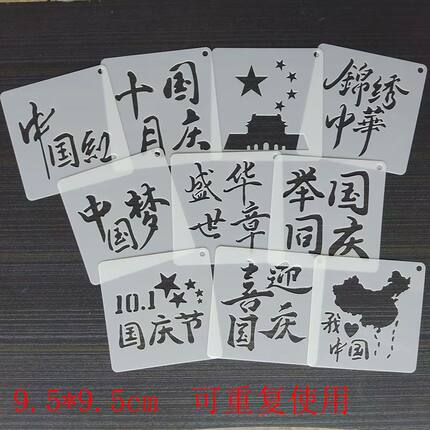 中国紅
十月
国庆
錦绣
中華
中国梦
盛世
华章
举国
同庆
10.1
国庆节
喜迎
国庆
我
中国
9.5*9.5cm 可重复使用